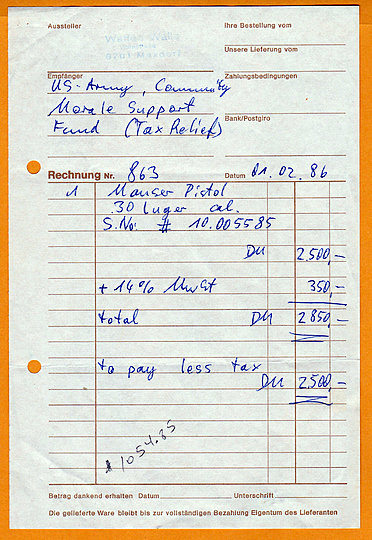 Aussteller
Ihre Bestellung vom
Unsere Lieferung vom
Empfänger
Zahlungsbedingungen
US-Army, Community
Morale Support
Bank/Postgiro
Fund (Tax Relief)
Rechnung Nr. 863 Datum 01.02.86
1 Mauser Pistol
.30 Luger cal.
S.No: # 10.005585
DM 2.500,-
+ 14% MwSt 350,-
total DM 2 850,-
to pay less tax
DM 2.500,-
$1054.85
Betrag dankend erhalten Datum Unterschrift
Die gelieferte Ware bleibt bis zur vollständigen Bezahlung Eigentum des Lieferanten